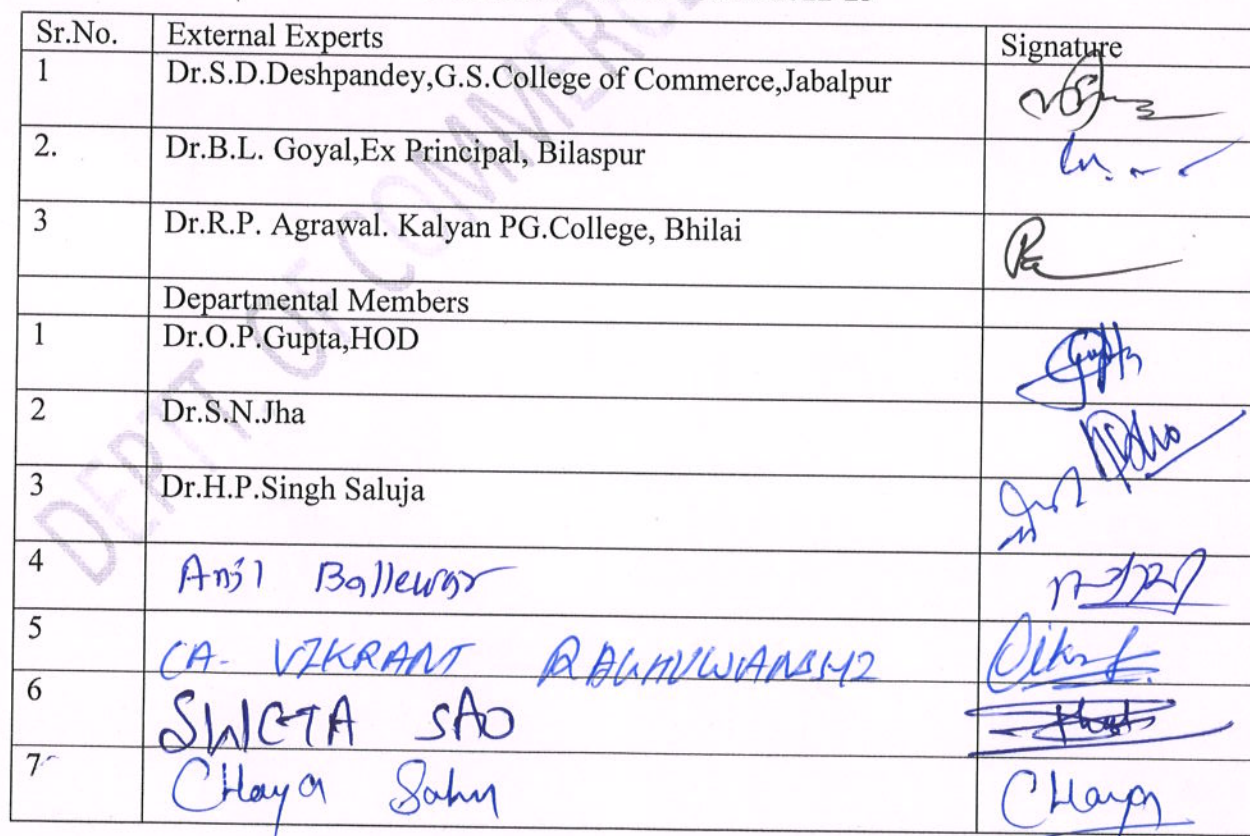 Sr.No. External Experts Signature
1 Dr.S.D.Deshpandey,G.S.College of Commerce,Jabalpur
2. Dr.B.L. Goyal,Ex Principal, Bilaspur
3 Dr.R.P. Agrawal. Kalyan PG.College, Bhilai
Departmental Members
1 Dr.O.P.Gupta,HOD Gupta
2 Dr.S.N.Jha
3 Dr.H.P.Singh Saluja
4 Anil Ballewar
5 CA. VIKRANT RAGHUWANSHI
6 SWETA SAO
7 CHaya Sahu CHaya
DEPTT OF COMMERCE